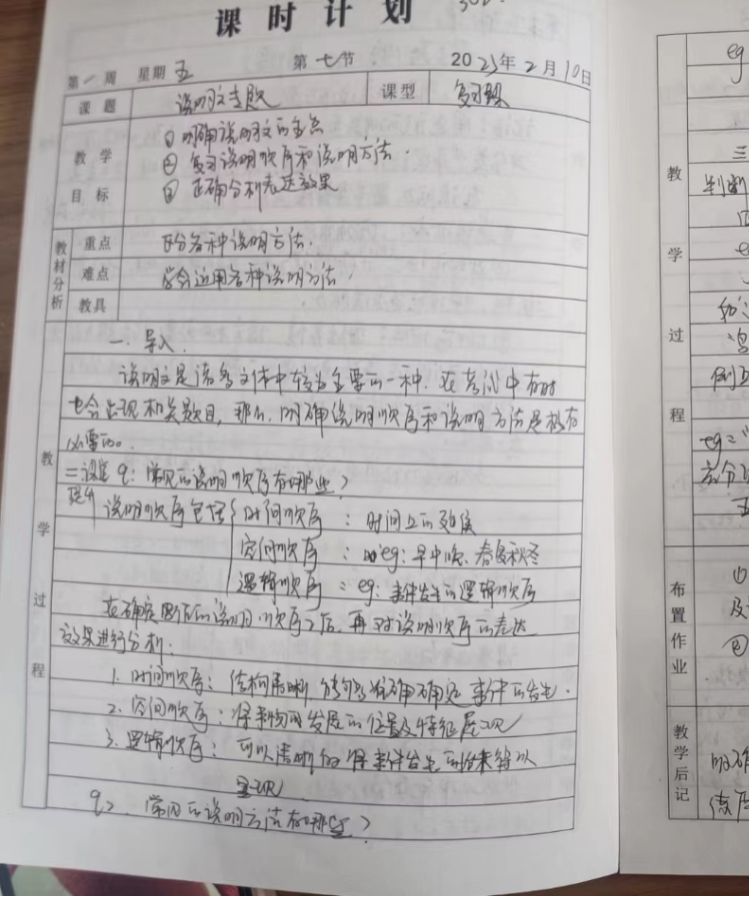 课时计划
第一周 星期五 第七节 2023年2月10日
课题 说明文专题 课型 复习课
教学目标
① 明确说明文的重点
② 复习说明顺序和说明方法.
③ 正确分析表达效果
教材分析
重点 区分各种说明方法.
难点 学会运用各种说明方法.
教具
教学过程
一、导入.
说明文是诸多文体中较为主要的一种. 在考试中有时
也会出现相关题目, 那么, 明确说明顺序和说明方法是极有
必要的.
二 q: 常见的说明顺序有哪些?
说明顺序包括
时间顺序: 时间上的
空间顺序: eg: 早中晚、春夏秋冬
逻辑顺序: eg: 事件发生的逻辑顺序
在确定的说明顺序之后, 再对说明顺序的表达
效果进行分析:
1. 时间顺序: 结构清晰 事件的发生.
2. 空间顺序: 将事物发展的位置及特征展现
3. 逻辑顺序: 可以清晰的将事件发生的结果得以
呈现
q2. 常用的说明方法有哪些?
eg
教学过程
三
判断
布置作业
①
及
②
教学后记
明确